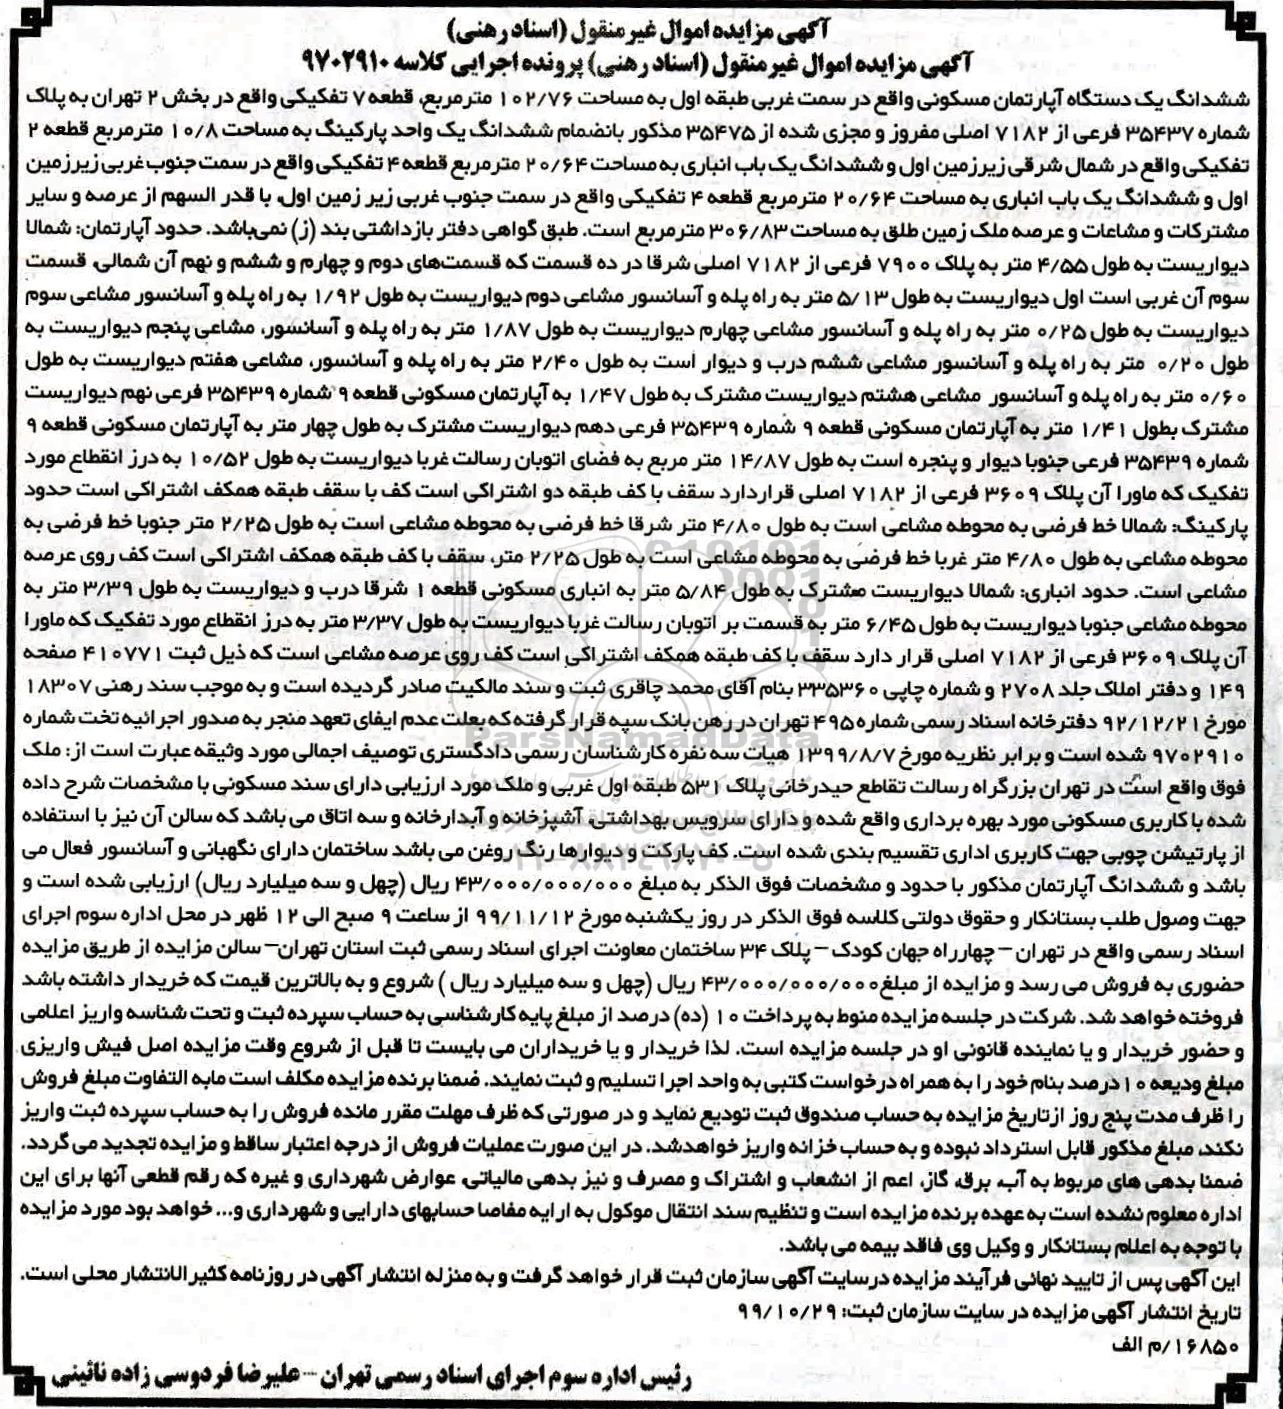 آگهی مزایده اموال غیر منقول (اسناد رهنی)
آگهی مزایده اموال غیر منقول (اسناد رهنی) پرونده اجرایی کلاسه ۹۷۰۲۹۱۰
ششدانگ یک دستگاه آپارتمان مسکونی واقع در سمت غربی طبقه اول به مساحت ۱۰۲/۷۶ مترمربع، قطعه ۷ تفکیکی واقع در بخش ۲ تهران به پلاک
شماره ۳۵۴۳۷ فرعی از ۷۱۸۲ اصلی مفروز و مجزی شده از ۳۵۴۷۵ مذکور بانضمام ششدانگ یک واحد پارکینگ به مساحت ۱۰/۸ مترمربع قطعه ۲
تفکیکی واقع در شمال شرقی زیرزمین اول و ششدانگ یک باب انباری به مساحت ۲۰/۶۴ مترمربع قطعه ۴ تفکیکی واقع در سمت جنوب غربی زیرزمین
اول و ششدانگ یک باب انباری به مساحت ۲۰/۶۴ مترمربع قطعه ۴ تفکیکی واقع در سمت جنوب غربی زیر زمین اول، با قدر السهم از عرصه و سایر
مشترکات و مشاعات و عرصه ملک زمین طلق به مساحت ۳۰۶/۸۳ مترمربع است. طبق گواهی دفتر بازداشتی بند (ز) نمی‌باشد. حدود آپارتمان: شمالا
دیواریست به طول ۴/۵۵ متر به پلاک ۷۹۰۰ فرعی از ۷۱۸۲ اصلی شرقا در ده قسمت که قسمت‌های دوم و چهارم و ششم و نهم آن شمالی، قسمت
سوم آن غربی است اول دیواریست به طول ۵/۱۳ متر به راه پله و آسانسور مشاعی دوم دیواریست به طول ۱/۹۲ به راه پله و آسانسور مشاعی سوم
دیواریست به طول ۰/۲۵ متر به راه پله و آسانسور مشاعی چهارم دیواریست به طول ۱/۸۷ متر به راه پله و آسانسور، مشاعی پنجم دیواریست به
طول ۰/۲۰ متر به راه پله و آسانسور مشاعی ششم درب و دیوار است به طول ۲/۴۰ متر به راه پله و آسانسور، مشاعی هفتم دیواریست به طول
۰/۶۰ متر به راه پله و آسانسور مشاعی هشتم دیواریست مشترک به طول ۱/۴۷ به آپارتمان مسکونی قطعه ۹ شماره ۳۵۴۳۹ فرعی نهم دیواریست
مشترک بطول ۱/۴۱ متر به آپارتمان مسکونی قطعه ۹ شماره ۳۵۴۳۹ فرعی دهم دیواریست مشترک به طول چهار متر به آپارتمان مسکونی قطعه ۹
شماره ۳۵۴۳۹ فرعی جنوبا دیوار و پنجره است به طول ۱۴/۸۷ متر مربع به فضای اتوبان رسالت غربا دیواریست به طول ۱۰/۵۲ به درز انقطاع مورد
تفکیک که ماورا آن پلاک ۳۶۰۹ فرعی از ۷۱۸۲ اصلی قراردارد سقف با کف طبقه دو اشتراکی است کف با سقف طبقه همکف اشتراکی است حدود
پارکینگ: شمالا خط فرضی به محوطه مشاعی است به طول ۴/۸۰ متر شرقا خط فرضی به محوطه مشاعی است به طول ۲/۲۵ متر جنوبا خط فرضی به
محوطه مشاعی به طول ۴/۸۰ متر غربا خط فرضی به محوطه مشاعی است به طول ۲/۲۵ متر، سقف با کف طبقه همکف اشتراکی است کف روی عرصه
مشاعی است. حدود انباری: شمالا دیواریست مشترک به طول ۵/۸۴ متر به انباری مسکونی قطعه ۱ شرقا درب و دیواریست به طول ۳/۳۹ متر به
محوطه مشاعی جنوبا دیواریست به طول ۶/۴۵ متر به قسمت بر اتوبان رسالت غربا دیواریست به طول ۳/۳۷ متر به درز انقطاع مورد تفکیک که ماورا
آن پلاک ۳۶۰۹ فرعی از ۷۱۸۲ اصلی قرار دارد سقف با کف طبقه همکف اشتراکی است کف روی عرصه مشاعی است که ذیل ثبت ۴۱۰۷۷۱ صفحه
۱۴۹ و دفتر املاک جلد ۲۷۰۸ و شماره چاپی ۳۳۵۳۶۰ بنام آقای محمد چاقری ثبت و سند مالکیت صادر گردیده است و به موجب سند رهنی ۱۸۳۰۷
مورخ ۹۲/۱۲/۲۱ دفترخانه اسناد رسمی شماره ۴۹۵ تهران در رهن بانک سپه قرار گرفته که بعلت عدم ایفای تعهد منجر به صدور اجرائیه تخت شماره
۹۷۰۲۹۱۰ شده است و برابر نظریه مورخ ۱۳۹۹/۸/۷ هیات سه نفره کارشناسان رسمی دادگستری توصیف اجمالی مورد وثیقه عبارت است از: ملک
فوق واقع است در تهران بزرگراه رسالت تقاطع حیدرخانی پلاک ۵۳۱ طبقه اول غربی و ملک مورد ارزیابی دارای سند مسکونی با مشخصات شرح داده
شده با کاربری مسکونی مورد بهره برداری واقع شده و دارای سرویس بهداشتی، آشپزخانه و آبدارخانه و سه اتاق می باشد که سالن آن نیز با استفاده
از پارتیشن چوبی جهت کاربری اداری تقسیم بندی شده است. کف پارکت و دیوارها رنگ روغن می باشد ساختمان دارای نگهبانی و آسانسور فعال می
باشد و ششدانگ آپارتمان مذکور با حدود و مشخصات فوق الذکر به مبلغ ۴۳/۰۰۰/۰۰۰/۰۰۰ ریال (چهل و سه میلیارد ریال) ارزیابی شده است و
جهت وصول طلب بستانکار و حقوق دولتی کلاسه فوق الذکر در روز یکشنبه مورخ ۹۹/۱۱/۱۲ از ساعت ۹ صبح الی ۱۲ ظهر در محل اداره سوم اجرای
اسناد رسمی واقع در تهران – چهارراه جهان کودک – پلاک ۳۴ ساختمان معاونت اجرای اسناد رسمی ثبت استان تهران– سالن مزایده از طریق مزایده
حضوری به فروش می رسد و مزایده از مبلغ ۴۳/۰۰۰/۰۰۰/۰۰۰ ریال (چهل و سه میلیارد ریال ) شروع و به بالاترین قیمت که خریدار داشته باشد
فروخته خواهد شد. شرکت در جلسه مزایده منوط به پرداخت ۱۰ (ده) درصد از مبلغ پایه کارشناسی به حساب سپرده ثبت و تحت شناسه واریز اعلامی
و حضور خریدار و یا نماینده قانونی او در جلسه مزایده است. لذا خریدار و یا خریداران می بایست تا قبل از شروع وقت مزایده اصل فیش واریزی
مبلغ ودیعه ۱۰ درصد بنام خود را به همراه درخواست کتبی به واحد اجرا تسلیم و ثبت نمایند. ضمنا برنده مزایده مکلف است مابه التفاوت مبلغ فروش
را ظرف مدت پنج روز از تاریخ مزایده به حساب صندوق ثبت تودیع نماید و در صورتی که ظرف مهلت مقرر مانده فروش را به حساب سپرده ثبت واریز
نکند، مبلغ مذکور قابل استرداد نبوده و به حساب خزانه واریز خواهدشد. در این صورت عملیات فروش از درجه اعتبار ساقط و مزایده تجدید می گردد.
ضمنا بدهی های مربوط به آب، برق، گاز، اعم از انشعاب و اشتراک و مصرف و نیز بدهی مالیاتی، عوارض شهرداری و غیره که رقم قطعی آنها برای این
اداره معلوم نشده است به عهده برنده مزایده است و تنظیم سند انتقال موکول به ارایه مفاصا حسابهای دارایی و شهرداری و... خواهد بود مورد مزایده
با توجه به اعلام بستانکار و وکیل وی فاقد بیمه می باشد.
این آگهی پس از تایید نهائی فرآیند مزایده درسایت آگهی سازمان ثبت قرار خواهد گرفت و به منزله انتشار آگهی در روزنامه کثیرالانتشار محلی است.
تاریخ انتشار آگهی مزایده در سایت سازمان ثبت: ۹۹/۱۰/۲۹
۱۶۸۵۰/م الف
رئیس اداره سوم اجرای اسناد رسمی تهران – علیرضا فردوسی زاده نائینی
ParsNamadData